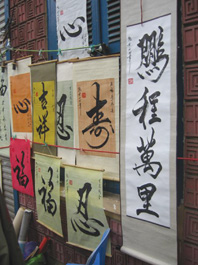 心
心
吉祥
忍
壽
鵬程萬里
福
福
忍